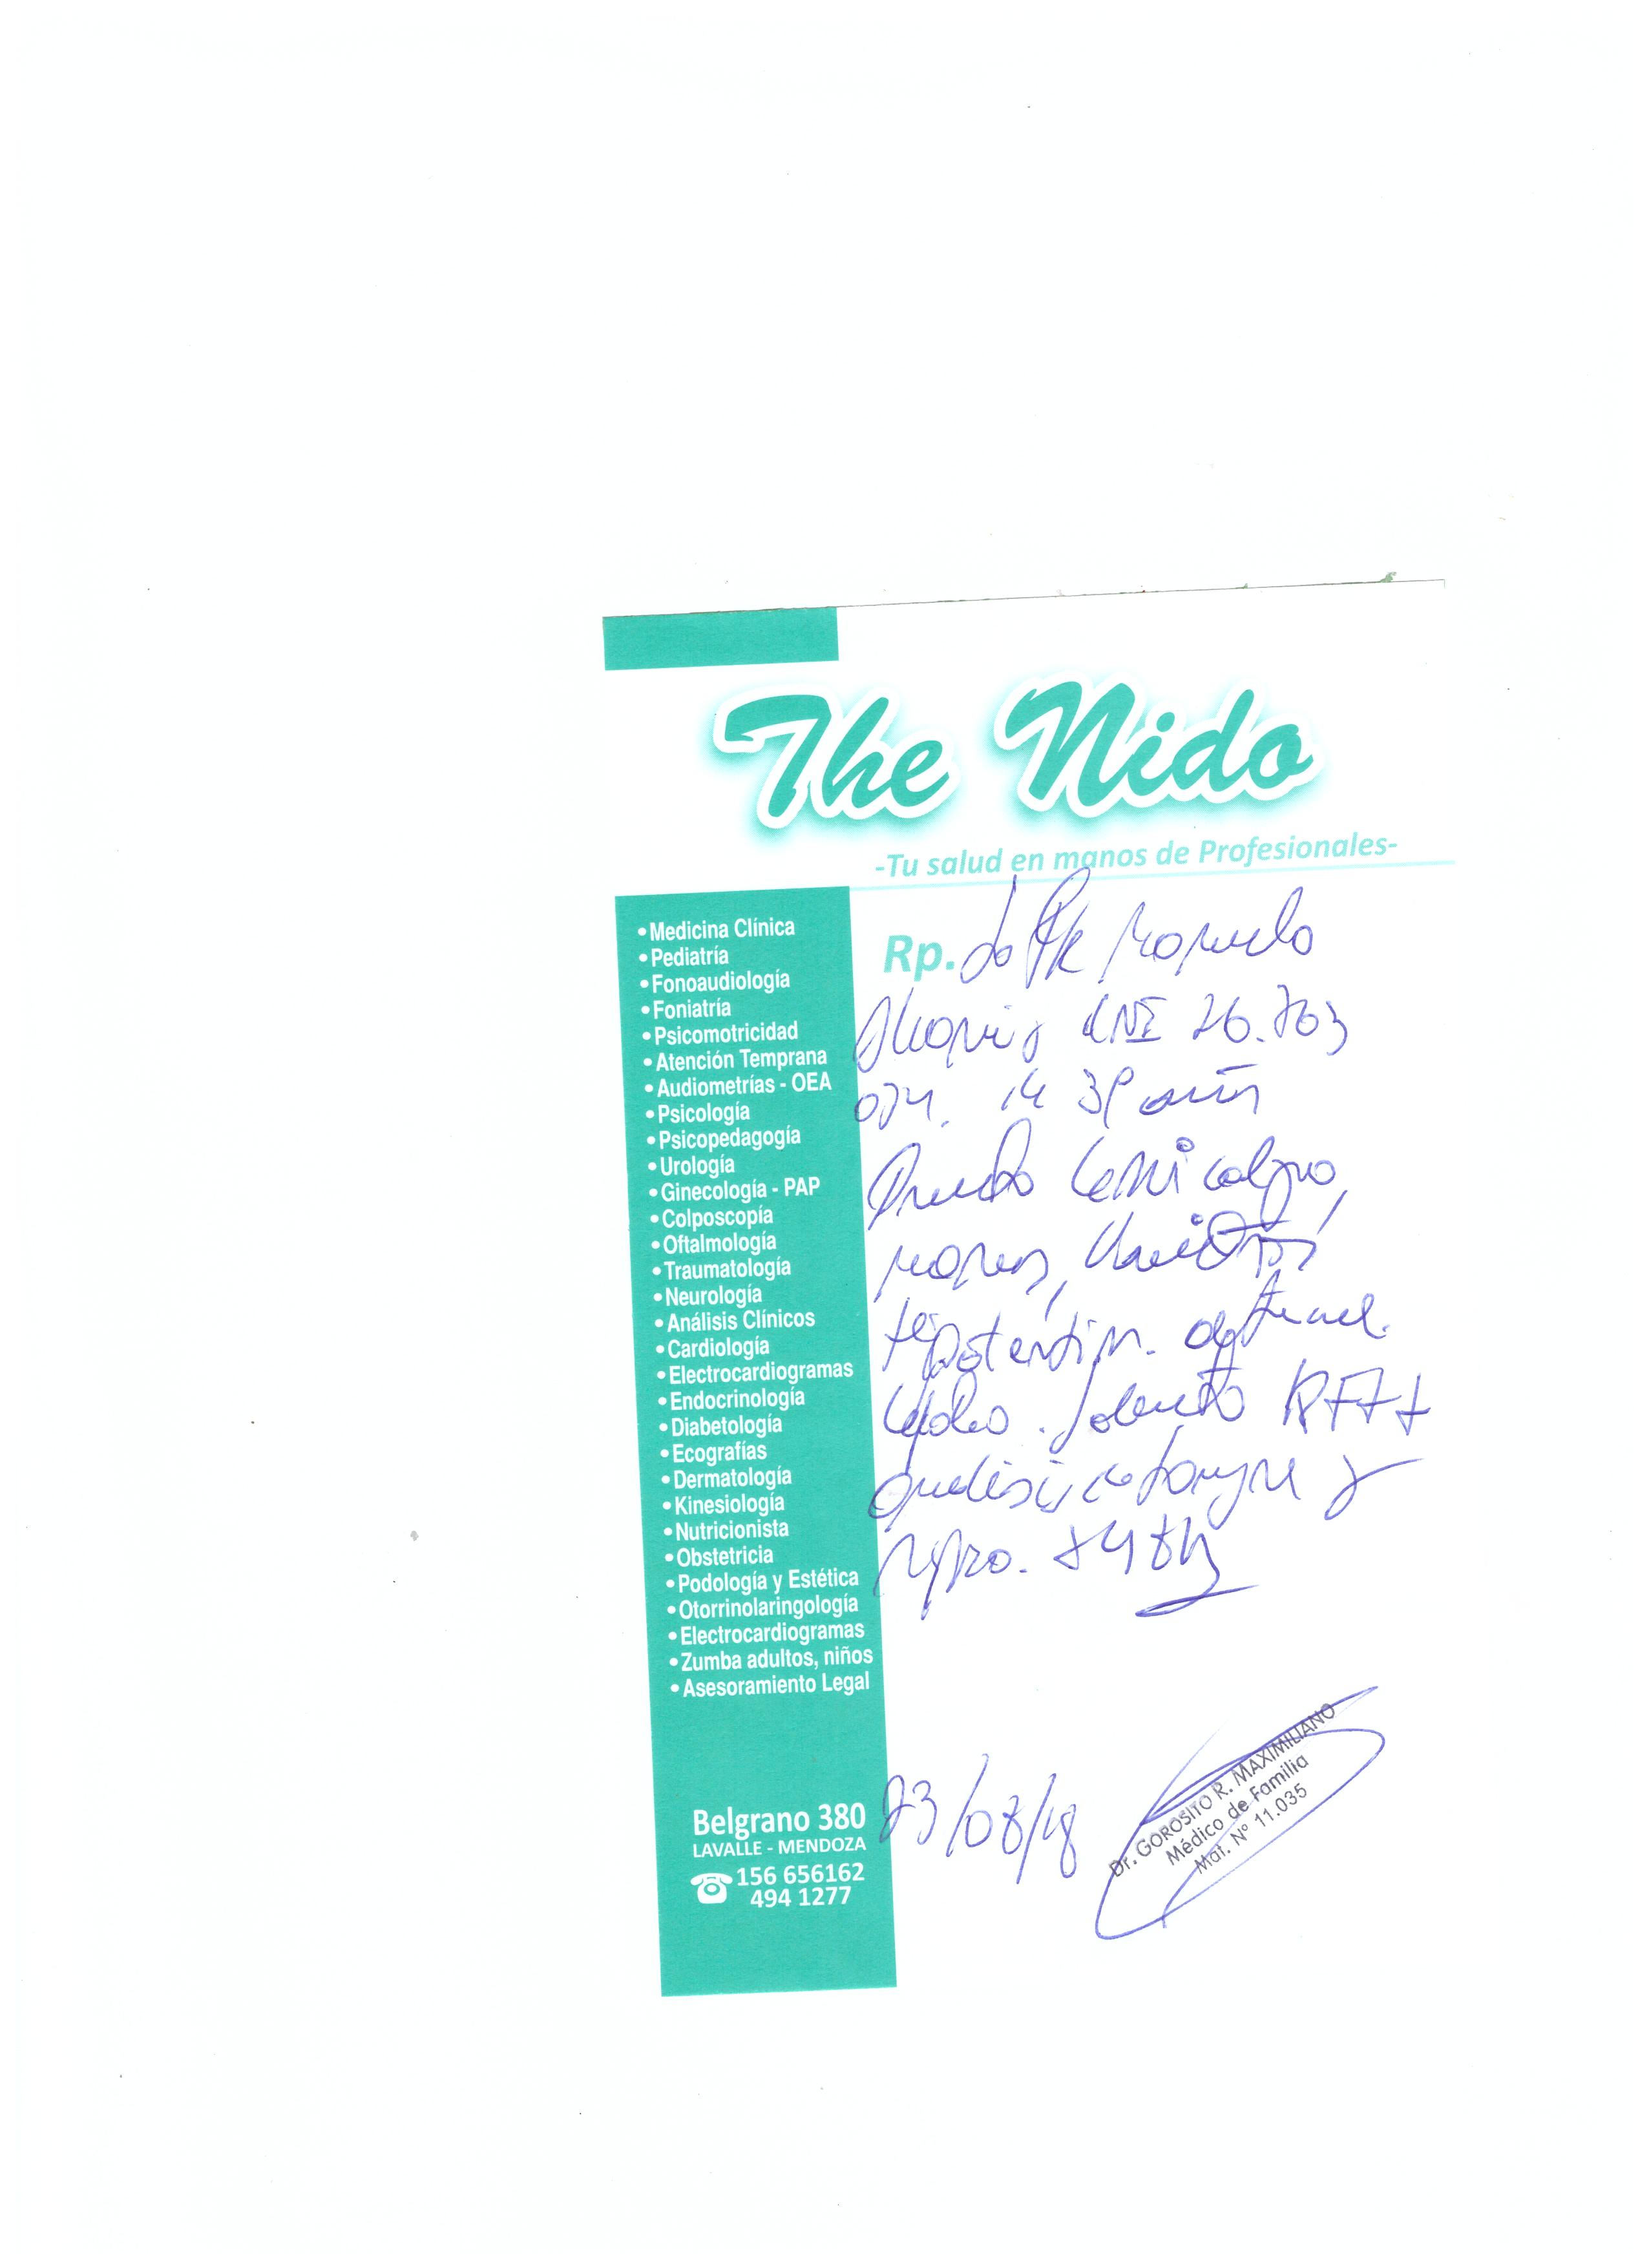 The Nido
-Tu salud en manos de Profesionales-
• Medicina Clínica
• Pediatría
• Fonoaudiología
• Foniatría
• Psicomotricidad
• Atención Temprana
• Audiometrías - OEA
• Psicología
• Psicopedagogía
• Urología
• Ginecología - PAP
• Colposcopía
• Oftalmología
• Traumatología
• Neurología
• Análisis Clínicos
• Cardiología
• Electrocardiogramas
• Endocrinología
• Diabetología
• Ecografías
• Dermatología
• Kinesiología
• Nutricionista
• Obstetricia
• Podología y Estética
• Otorrinolaringología
• Electrocardiogramas
• Zumba adultos, niños
• Asesoramiento Legal
Belgrano 380
LAVALLE - MENDOZA
156 656162
494 1277
Rp.
DNI 26.763
años
mareos,
Hipotension.
Solicito
analisis de sangre y
reposo. 48h
23/08/18
Dr. GOROSITO R. MAXIMILIANO
Médico de Familia
Mat. N° 11.035